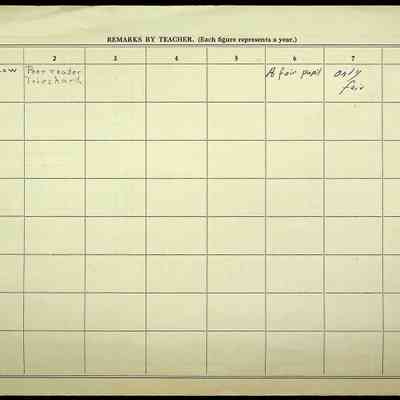 REMARKS BY TEACHER. (Each figure represents a year.)
2 3 4 5 6 7
ow Poor reader A fair pupil only
Tries hard fair